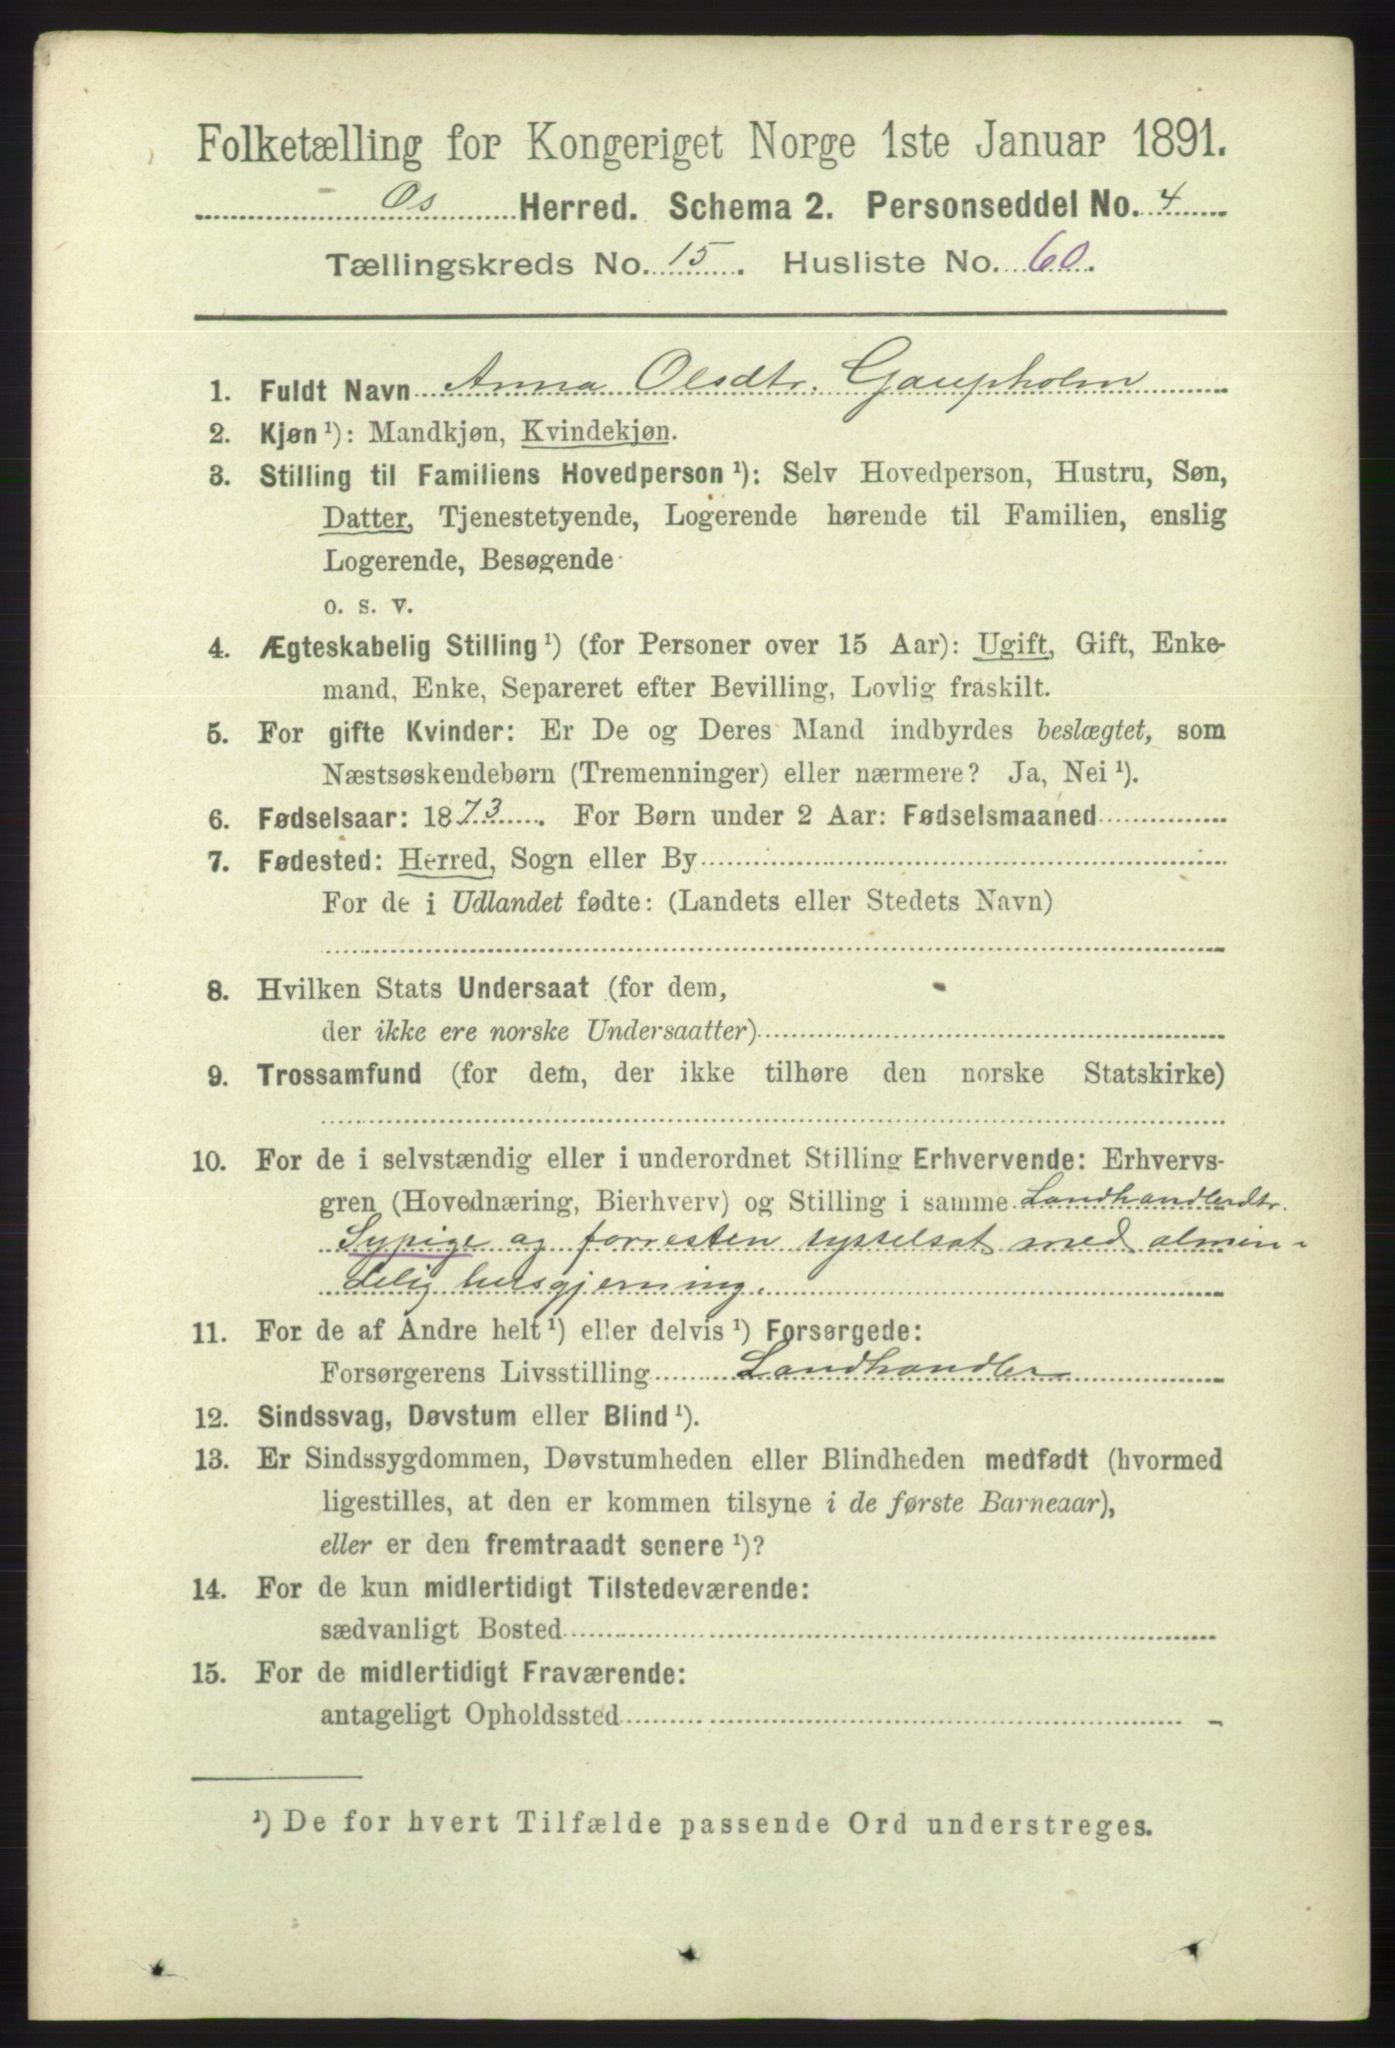 Folketælling for Kongeriget Norge 1ste Januar 1891.
Os Herred. Schema 2. Personseddel No. 4
Tællingskreds No. 15. Husliste No. 60.
1. Fuldt Navn Anna Olsdtr. Gaupholm
2. Kjøn¹): Mandkjøn, Kvindekjøn.
3. Stilling til Familiens Hovedperson¹): Selv Hovedperson, Hustru, Søn,
Datter, Tjenestetyende, Logerende hørende til Familien, enslig
Logerende, Besøgende
o. s. v.
4. Ægteskabelig Stilling¹) (for Personer over 15 Aar): Ugift, Gift, Enke-
mand, Enke, Separeret efter Bevilling, Lovlig fraskilt.
5. For gifte Kvinder: Er De og Deres Mand indbyrdes beslægtet, som
Næstsøskendebørn (Tremenninger) eller nærmere? Ja, Nei¹).
6. Fødselsaar: 1873. For Børn under 2 Aar: Fødselsmaaned
7. Fødested: Herred, Sogn eller By
For de i Udlandet fødte: (Landets eller Stedets Navn)
8. Hvilken Stats Undersaat (for dem,
der ikke ere norske Undersaatter)
9. Trossamfund (for dem, der ikke tilhøre den norske Statskirke)
10. For de i selvstændig eller i underordnet Stilling Erhvervende: Erhvervs-
gren (Hovednæring, Bierhverv) og Stilling i samme Landhandlerdtr.
Sypige og forresten sysselsat med almin-
delig husgjerning.
11. For de af Andre helt¹) eller delvis¹) Forsørgede:
Forsørgerens Livsstilling Landhandler
12. Sindssvag, Døvstum eller Blind¹).
13. Er Sindssygdommen, Døvstumheden eller Blindheden medfødt (hvormed
ligestilles, at den er kommen tilsyne i de første Barneaar),
eller er den fremtraadt senere¹)?
14. For de kun midlertidigt Tilstedeværende:
sædvanligt Bosted
15. For de midlertidigt Fraværende:
antageligt Opholdssted
¹) De for hvert Tilfælde passende Ord understreges.